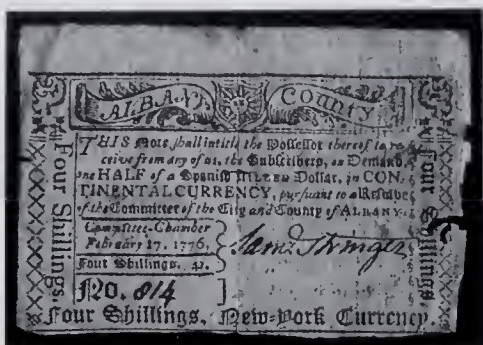 ALBANY COUNTY
THIS Note shall intitle the Possessor thereof to re-
ceive from any of us, the Subscribers, on Demand,
one HALF of a Spanish MILLED Dollar, in CON-
TINENTAL CURRENCY, pursuant to a Resolve
of the Committee of the City and County of ALBANY.
Committee-Chamber
February 17. 1776,
Four Shillings.
Sam.l Stringer
No. 814
Four Shillings. New-York Currency.
Four Shillings.
Four Shillings.